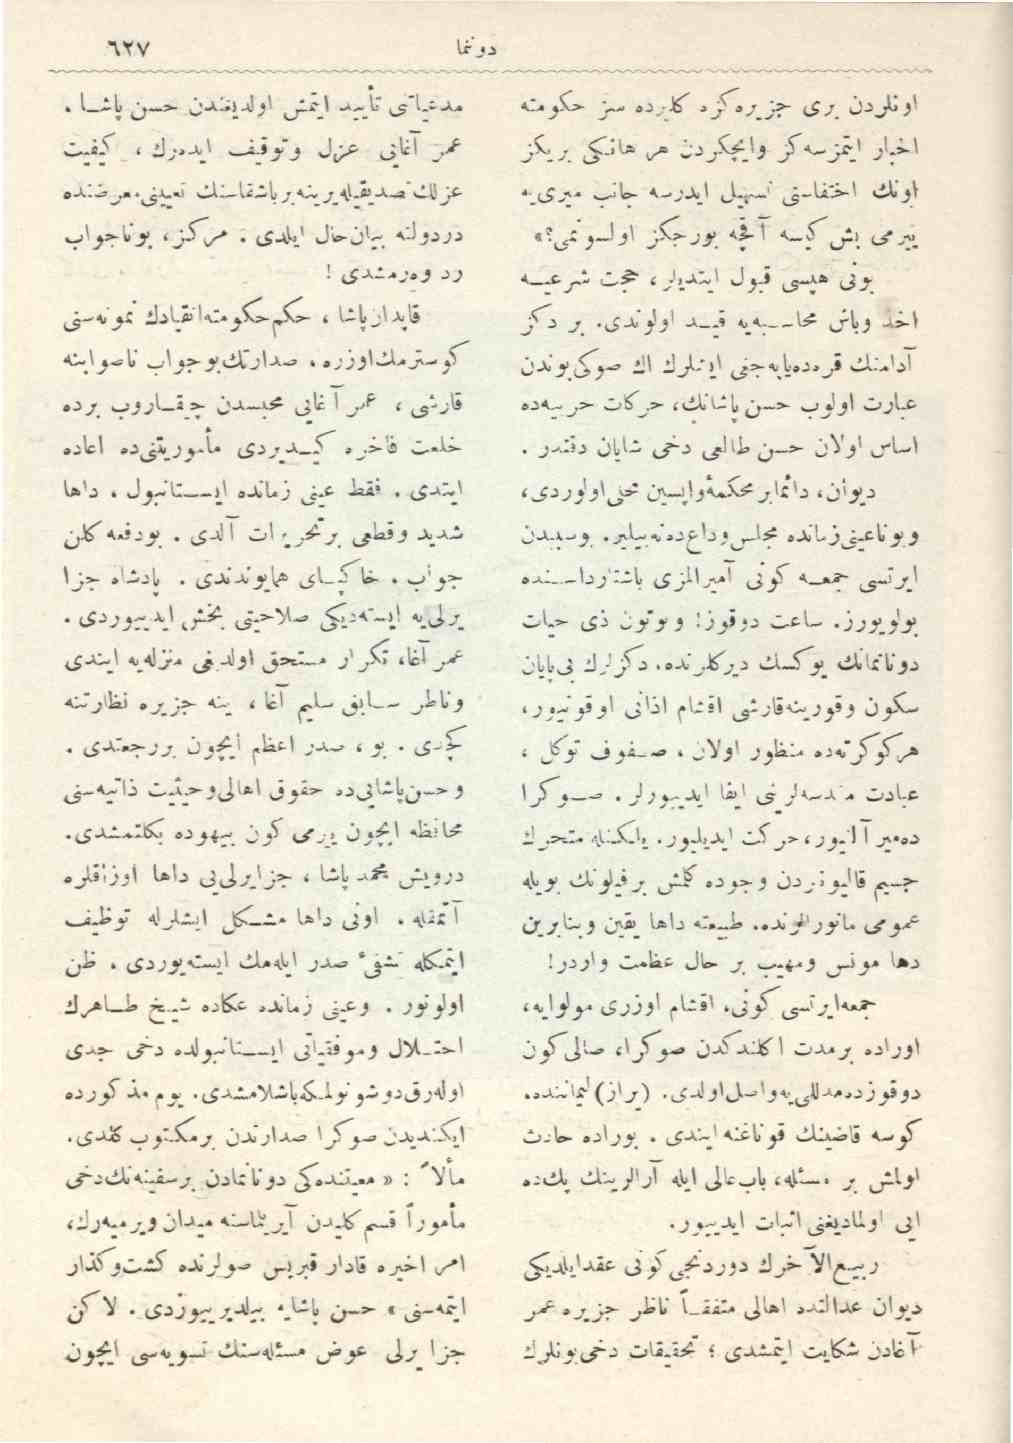 دونما
٦٢٧
اونلردن بری جزیره‌كزه كلیرده سز حكومته
اخبار ایتمزسه‌كز وایچكزدن هر هانكی بریكز
اونك اختفاسنی تسهیل ایدرسه جانب میری‌یه
ییرمی بش كیسه آقچه بورجكز اولسونمی؟»
بونی هپسی قبول ایتدیلر، حجت شرعیــه
اخذ وباش محاسبه‌یه قیــد اولوندی. بر دكز
آدامنك قره‌ده‌یاپه‌جغی ایشلرك اك صوكی‌بوندن
عبارت اولوب حسن پاشانك، حركات حربیه‌ده
اساس اولان حسن طالعی دخی شایان دقتدر .
دیوان، دائمابر محكمهٔ‌واپسین تجلی‌اولوردی،
وبوناعینی‌زمانده مجلس‌وداع‌ده‌نه‌بیلیر. بوسببدن
ایرتسی جمعــه كونی آمیرالمزی باشتارداســنده
بولویورز. ساعت دوقوز! وبوتون ذی حیات
دونانمانك یوكسك دیركلرنده، دكزلرك بی‌پایان
سكون وقورینه‌قارشی اقشام اذانی اوقونیور،
هركوكرته‌ده منظور اولان، صــفوف توكل ،
عبادت مقدسه‌لرینی ایفا ایدییورلر. صــوكرا
ده‌میر آلنیور، حركت ایدیلیور. یلكنله متحرك
جسیم قالیونردن وجوده كلمش برفیلونك بویله
عمومی مانورالرنده، طبیعته داها یقین وبنابرین
دها مونس ومهیب بر حال عظمت واردر!
جمعه‌ایرتسی كونی، اقشام اوزری مولوایه،
اوراده برمدت اكلندكدن صوكرا، صالی‌كون
دوقوزده‌مدللی‌یه‌واصل‌اولدی. (یراز) لیماننده،
كوسه قاضینك قوناغنه ایندی . بوراده حادث
اولمش بر مسئله، باب‌عالی ایله آرالرینك پك‌ده
ایی اولمادیغنی اثبات ایدییور.
ربیع‌الآخرك دوردنجی‌كونی عقدایلدیكی
دیوان عدالتده اهالی متفقــاً ناظر جزیره عمر
آغادن شكایت ایتمشدی ؛ تحقیقات دخی‌بونلرك
مدعیاتنی تأیید ایتمش اولدیغندن حسن پاشــا ،
عمر آغایی عزل وتوقیف ایده‌رك ، كیفیت
عزلك‌تصدیقیله‌یرینه‌برباشقاسنك تعیینی‌معرضنده
دردولته بیان‌حال ایلدی . مركز، بوناجواب
رد ویرمشدی !
قاپدازپاشا ، حكم‌حكومته‌انقیادك نمونه‌سنی
كوسترمك‌اوزره، صدارتك‌بوجواب ناصوابنه
قارشی ، عمر آغایی محبسدن چیقــاروب برده
خلعت فاخره كیــدیردی مأموریتنی‌ده اعاده
ایتدی . فقط عینی زمانده ایســتانبول ، داها
شدید وقطعی برتحریرات آلدی . بودفعه كلن
جواب، خاكپــای همایوندندی . پادشاه جزا
یرلی‌یه ایسته‌دیكی صلاحیتی بخش ایدییوردی .
عمر آغا، تكرار مستحق اولدیغی منزله‌یه ایندی
وناظر ســابق سلیم آغا ، ینه جزیره نظارتنه
كچدی . بو ، صدر اعظم ایچون بررجعتدی .
وحسن‌پاشایی‌ده حقوق اهالی‌وحیثیت ذاتیه‌سنی
محافظه ایچون یرمی كون بیهوده بكلتمشدی.
درویش محمد پاشا ، جزایرلی‌یی داها اوزاقلره
آتمقله . اونی داها مشــكل ایشلرله توظیف
ایتمكله تشفیٔ صدر ایله‌مك ایسته‌یوردی . ظن
اولونور . وعینی زمانده عكاده شیــخ طــاهرك
اختــلال وموفقیاتی ایســتانبولده دخی جدی
اوله‌رق‌دوشونولمكه‌باشلامشدی. یوم مذكورده
ایكندیدن صوكرا صدارتدن برمكتوب كلدی.
مألاً : « معیتنده‌كی دونانمادن برسفینه‌نك‌دخی
مأموراً قسم كلیدن آیریلماسنه میدان ویرمیه‌رك،
امر اخیره قادار قبریس صولرنده كشت‌وكذار
ایتمه‌سنی » حسن پاشایه بیلدیرییوزدی . لاكن
جزا یرلی عوض مسئله‌سنك تسویه‌سی ایچون